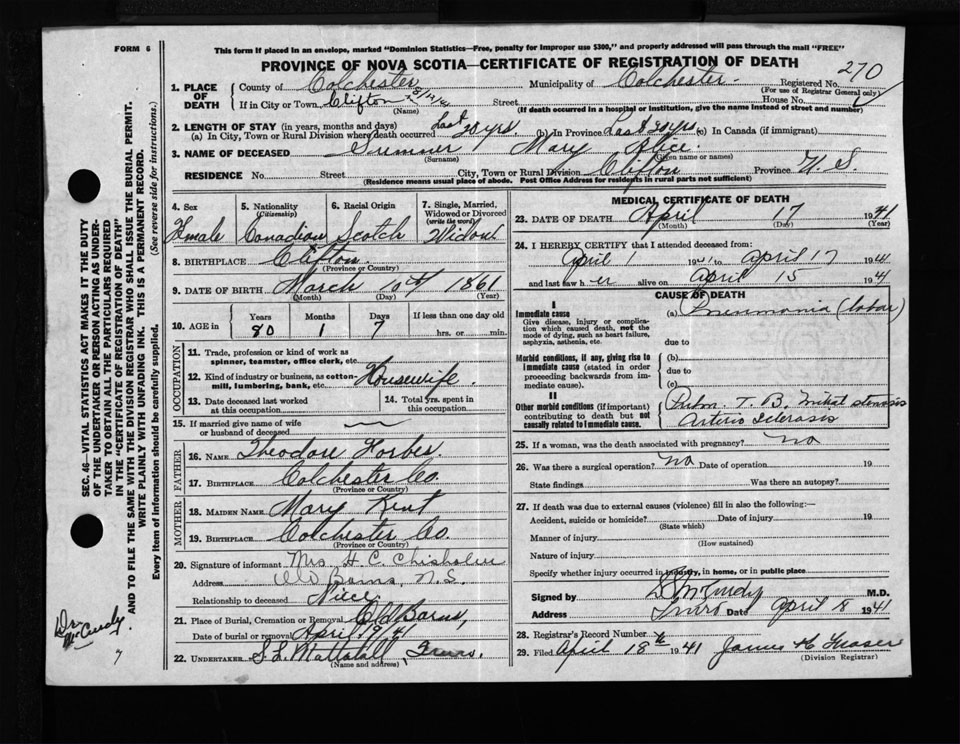 FORM 6
This form if placed in an envelope, marked "Dominion Statistics—Free, penalty for improper use $300," and properly addressed will pass through the mail "FREE"
PROVINCE OF NOVA SCOTIA—CERTIFICATE OF REGISTRATION OF DEATH
270
1. PLACE OF DEATH County of Colchester Municipality of Colchester Registered No.
(For use of Registrar General only)
If in City or Town, Clifton Street House No.
(Name) (If death occurred in a hospital or institution, give the name instead of street and number)
2. LENGTH OF STAY (in years, months and days)
(a) In City, Town or Rural Division where death occurred Last 20 yrs (b) In Province Last 20 yrs (c) In Canada (if immigrant)
3. NAME OF DECEASED Sumner Mary Alice.
(Surname) (Given name or names)
RESIDENCE No. Street City, Town or Rural Division Clifton Province N. S.
(Residence means usual place of abode. Post Office Address for residents in rural parts not sufficient)
4. Sex 5. Nationality (Citizenship) 6. Racial Origin 7. Single, Married, Widowed or Divorced (write the word)
Female Canadian Scotch Widow
8. BIRTHPLACE Clifton
(Province or Country)
9. DATE OF BIRTH March 10th 1861
(Month) (Day) (Year)
10. AGE in Years Months Days If less than one day old
80 1 7 hrs. or min.
OCCUPATION
11. Trade, profession or kind of work as spinner, teamster, office clerk, etc.
12. Kind of industry or business, as cotton-mill, lumbering, bank, etc. Housewife.
13. Date deceased last worked at this occupation 14. Total yrs. spent in this occupation.
15. If married give name of wife or husband of deceased
FATHER
16. NAME Theodore Forbes
17. BIRTHPLACE Colchester Co.
(Province or Country)
MOTHER
18. MAIDEN NAME Mary Kent
19. BIRTHPLACE Colchester Co.
(Province or Country)
20. Signature of informant Mrs. H. C. Chisholm
Address Old Barns, N. S.
Relationship to deceased Niece
21. Place of Burial, Cremation or Removal Old Barns,
Date of burial or removal April 19, 41
22. UNDERTAKER S. L. Mattatall, Truro.
(Name and address)
MEDICAL CERTIFICATE OF DEATH
23. DATE OF DEATH April 17 1941
(Month) (Day) (Year)
24. I HEREBY CERTIFY that I attended deceased from:
April 1 1941 to April 17 1941
and last saw her alive on April 15 1941
CAUSE OF DEATH
I
Immediate cause
Give disease, injury or complication which caused death, not the mode of dying, such as heart failure, asphyxia, asthenia, etc.
(a) Pneumonia (lobar)
due to
Morbid conditions, if any, giving rise to immediate cause (stated in order proceeding backwards from immediate cause).
(b)
due to
(c)
II
Other morbid conditions (if important) contributing to death but not causally related to immediate cause.
Pulm. T. B. Mitral stenosis
Arterio Sclerosis
25. If a woman, was the death associated with pregnancy? no
26. Was there a surgical operation? no Date of operation 19
State findings Was there an autopsy?
27. If death was due to external causes (violence) fill in also the following:—
Accident, suicide or homicide? Date of injury 19
(State which)
Manner of injury
(How sustained)
Nature of injury
Specify whether injury occurred in industry, in home, or in public place
Signed by McCurdy M.D.
Address Truro Date April 8 1941
28. Registrar's Record Number
29. Filed April 18th 1941 James H Fraser
(Division Registrar)
SEC. 46—VITAL STATISTICS ACT MAKES IT THE DUTY
OF THE UNDERTAKER OR PERSON ACTING AS UNDER-
TAKER TO OBTAIN ALL THE PARTICULARS REQUIRED
IN THE "CERTIFICATE OF REGISTRATION OF DEATH"
AND TO FILE THE SAME WITH THE DIVISION REGISTRAR WHO SHALL ISSUE THE BURIAL PERMIT.
WRITE PLAINLY WITH UNFADING INK. THIS IS A PERMANENT RECORD.
Every item of information should be carefully supplied. (See reverse side for instructions.)
Dr.
McCurdy
7